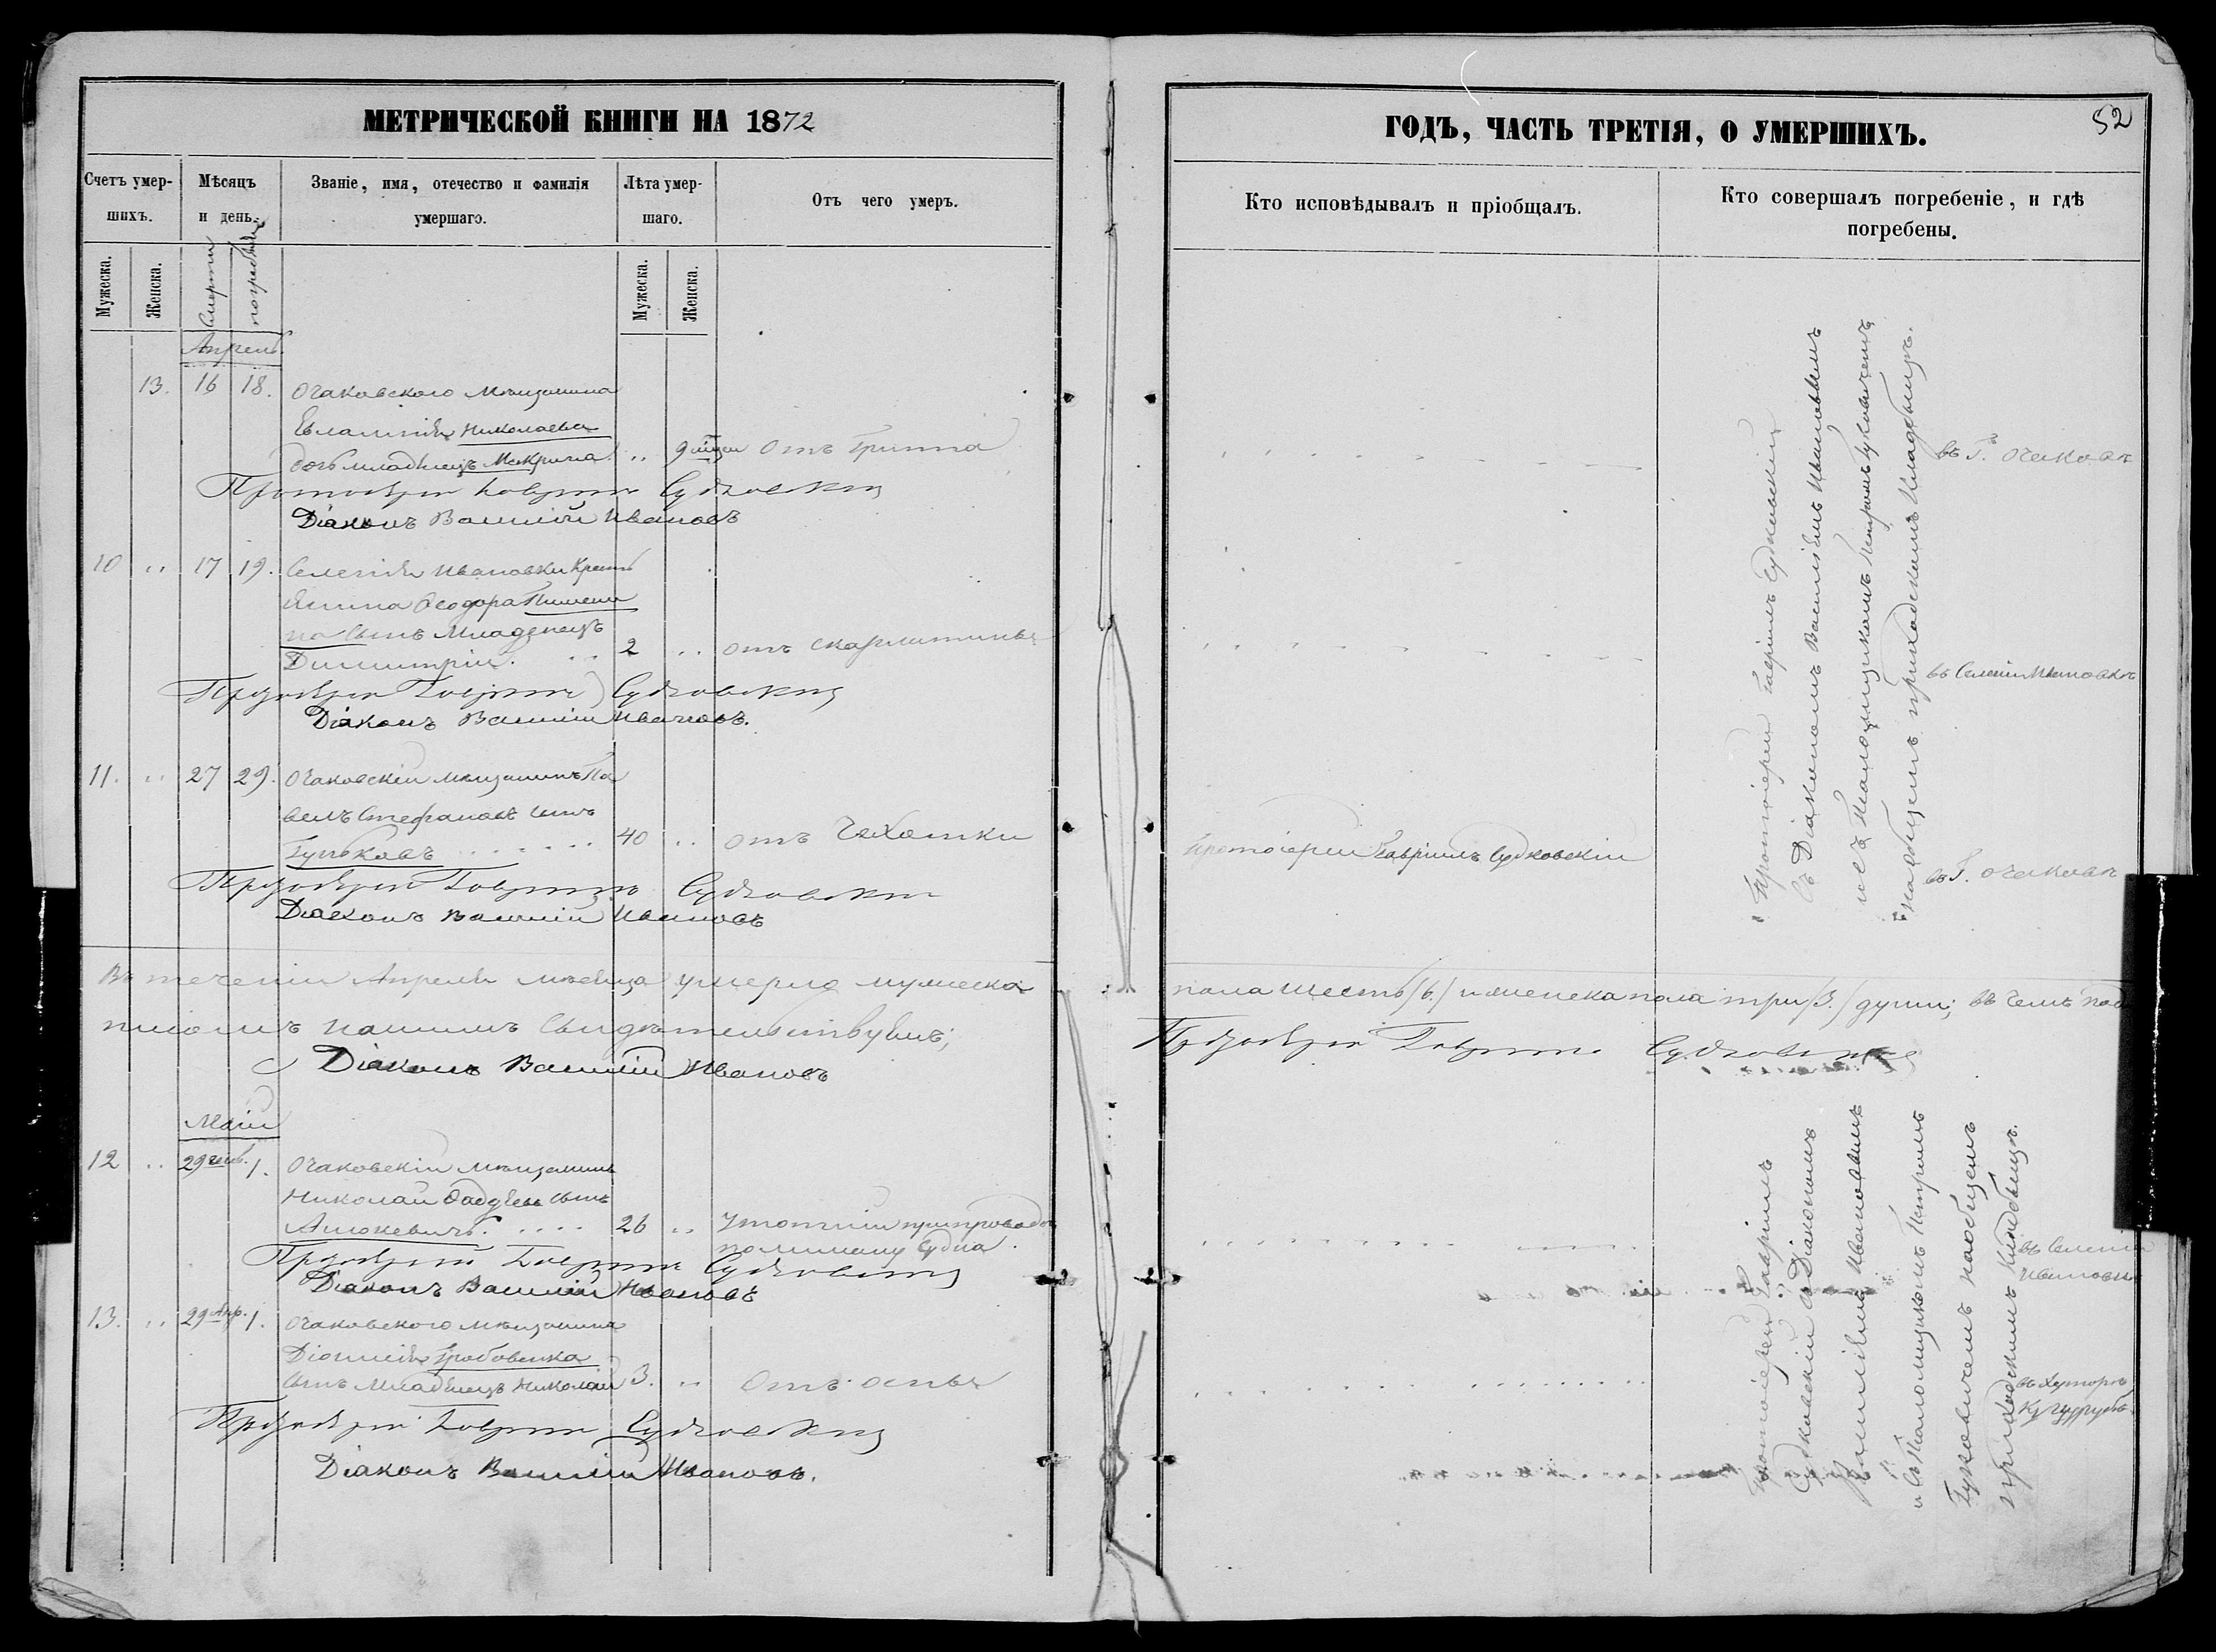 МЕТРИЧЕСКОЙ КНИГИ НА 1872
Счетъ умер-
шихъ.
Мѣсяцъ
и день.
Званіе, имя, отечество и фамилія
умершаго.
Лѣта умер-
шаго.
Отъ чего умеръ.
Мужеска.
Женска.
Смерти
погребенія
Мужеска.
Женска.
Апрель
13. 16 18. Очаковского мѣщанина
Николаева
дочь младенецъ Макрина. .. 9 мѣсяц Отъ Гриппа
Протоіерей Гавріилъ Судковскій
Діаконъ Василій Ивановъ
10 .. 17 19. Селенія Ивановки Кресть
янина Ѳеодора Пимени
на сынъ Младенецъ
Димитрій. .. 2 .. отъ скарлатины
Протоіерей Гавріилъ Судковскій
Діаконъ Василій Ивановъ.
11. .. 27 29. Очаковскій мѣщанинъ Па
велъ Стефановъ сынъ
Гуньковъ ...... 40 .. отъ Чахотки
Протоіерей Гавріилъ Судковскій
Діаконъ Василій Ивановъ
Въ теченіи Апреля мѣсяца умерло мужеска
писомъ нашимъ свидѣтельствуемъ;
Діаконъ Василій Ивановъ
Маій
12 .. 29 1. Очаковскій мѣщанинъ
Николай Ѳаддѣевъ сынъ
.... 26 ..
судна.
Протоіерей Гавріилъ Судковскій
Діаконъ Василій Ивановъ
13. .. 29 Апр. 1. Очаковского мѣщанина
Діонисія Гробовенка
сынъ младенецъ Николай 3. .. Отъ оспы
Протоіерей Гавріилъ Судковскій
Діаконъ Василій Ивановъ.
ГОДЪ, ЧАСТЬ ТРЕТІЯ, О УМЕРШИХЪ.
52
Кто исповѣдывалъ и пріобщалъ.
Кто совершалъ погребеніе, и гдѣ
погребены.
Протоіерей Гавріилъ Судковскій
съ Діакономъ Василіемъ Ивановымъ
и съ Псаломщикомъ Петромъ Гуковичемъ
на общемъ приходскомъ кладбищѣ.
въ Г. Очаковѣ
въ Селеніи Ивановкѣ
Протоіерей Гавріилъ Судковскій
въ Г. Очаковѣ
пола шесть /6./ и женска пола три /3./ души; въ чемъ под
Протоіерей Гавріилъ Судковскій
Протоіерей Гавріилъ
Судковскій съ Діакономъ
Василіемъ Ивановымъ
и съ Псаломщикомъ Петромъ
Гуковичемъ на общемъ
приходскомъ кладбищѣ.
въ Селеніи
Ивановкѣ
въ Хуторѣ